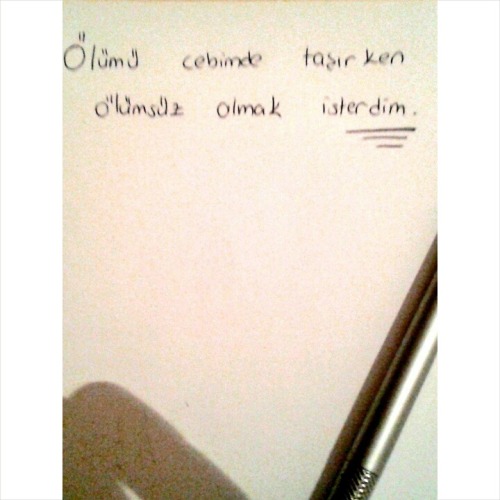 Ölümü cebimde taşırken
ölümsüz olmak isterdim.